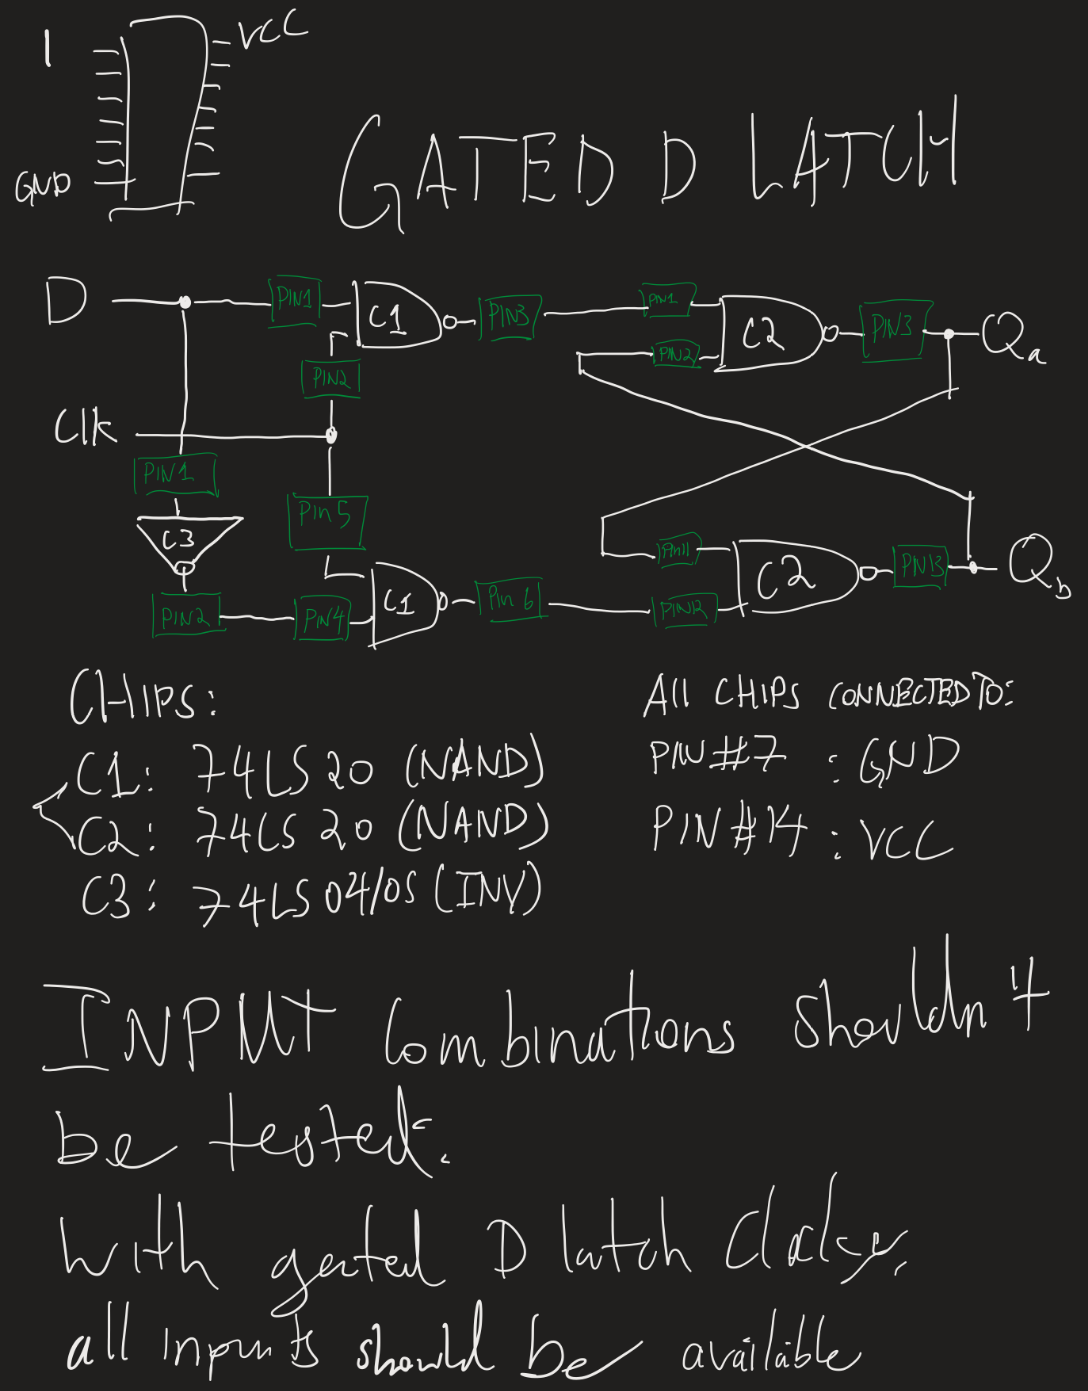 1
VCC
GND
GATED D LATCH
D
PIN1
C1
PIN3
PIN1
C2
PIN3
Qa
PIN2
PIN2
Clk
PIN1
Pin 5
C3
PIN2
PIN4
C1
Pin 6
Pin11
PIN12
C2
PIN13
Qb
CHIPS:
C1: 74LS20 (NAND)
C2: 74LS20 (NAND)
C3: 74LS04/05 (INV)
All CHIPS CONNECTED TO:
PIN#7 : GND
PIN#14 : VCC
INPUT Combinations shouldn't
be tested:
With gated D latch
all inputs should be available